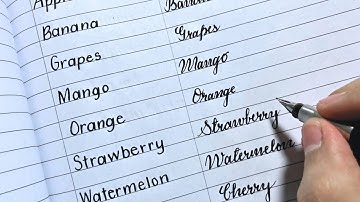 Apple Banana
Banana Grapes
Grapes Mango
Mango Orange
Orange Strawberry
Strawberry Watermelon
Watermelon Cherry